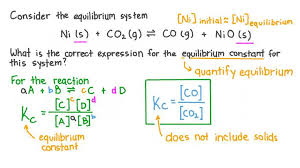 Consider the equilibrium system
[Ni]initial ≈ [Ni]equilibrium
Ni (s) + CO₂ (g) ⇌ CO (g) + NiO (s)
What is the correct expression for the equilibrium constant for
this system?
quantify equilibrium
For the reaction
aA + bB ⇌ cC + dD
Kc = [C]ᶜ[D]ᵈ / [A]ᵃ[B]ᵇ
equilibrium
constant
Kc = [CO] / [CO₂]
does not include solids